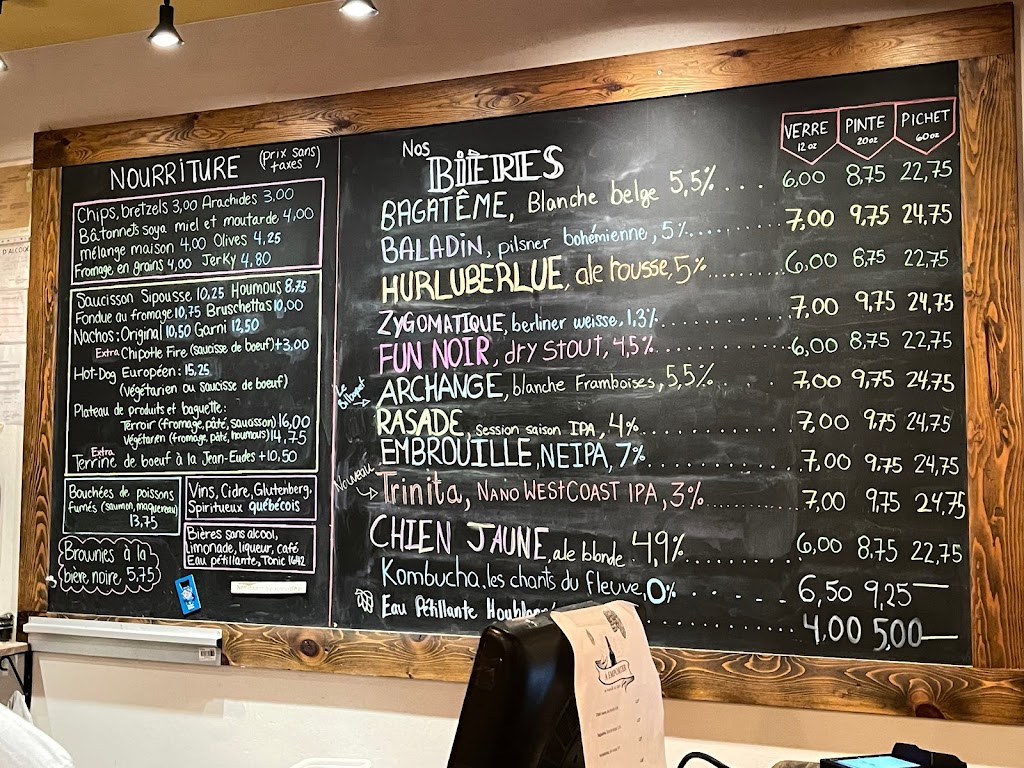 NOURRITURE (prix sans taxes)
Chips, bretzels 3,00 Arachides 3,00
Bâtonnets soya miel et moutarde 4,00
mélange maison 4,00 Olives 4,25
Fromage en grains 4,00 Jerky 4,80
Saucisson Sipousse 10,25 Houmous 8,75
Fondue au fromage 10,75 Bruschettas 10,00
Nachos: Original 10,50 Garni 12,50
Extra Chipotle Fire (saucisse de boeuf) +3,00
Hot-Dog Européen: 15,25
(végétarien ou saucisse de boeuf)
Plateau de produits et baguette:
Terroir (fromage, pâté, saucisson) 16,00
Végétarien (fromage, pâté, houmous) 14,75
Extra
Terrine de boeuf à la Jean-Eudes +10,50
Bouchées de poissons
fumés (saumon, maquereau)
13,75
Vins, Cidre, Glutenberg,
Spiritueux québécois
Bières sans alcool,
limonade, liqueur, café
Eau pétillante, Tonic 1642
Brownies à la
bière noire 5,75
Nos
BIÈRES
VERRE 12 oz PINTE 20 oz PICHET 60 oz
BAGATÊME, Blanche belge 5,5% .... 6,00 8,75 22,75
BALADIN, pilsner bohémienne, 5% ........ 7,00 9,75 24,75
HURLUBERLUE, ale rousse, 5% ........ 6,00 8,75 22,75
ZYGOMATIQUE, berliner weisse, 1,3% ........ 7,00 9,75 24,75
FUN NOIR, dry stout, 4,5% ........ 6,00 8,75 22,75
ARCHANGE, blanche Framboises, 5,5% .... 7,00 9,75 24,75
RASADE, Session saison IPA, 4% ........ 7,00 9,75 24,75
EMBROUILLE, NEIPA, 7% ........ 7,00 9,75 24,75
Nouveau
Trinita, NANO WESTCOAST IPA, 3% ........ 7,00 9,75 24,75
CHIEN JAUNE, ale blonde 4,9% ........ 6,00 8,75 22,75
Kombucha, les chants du fleuve, 0% ...... 6,50 9,25 —
Eau Pétillante ........ 4,00 5,00 —
À EMPORTER
D'ALCOOL